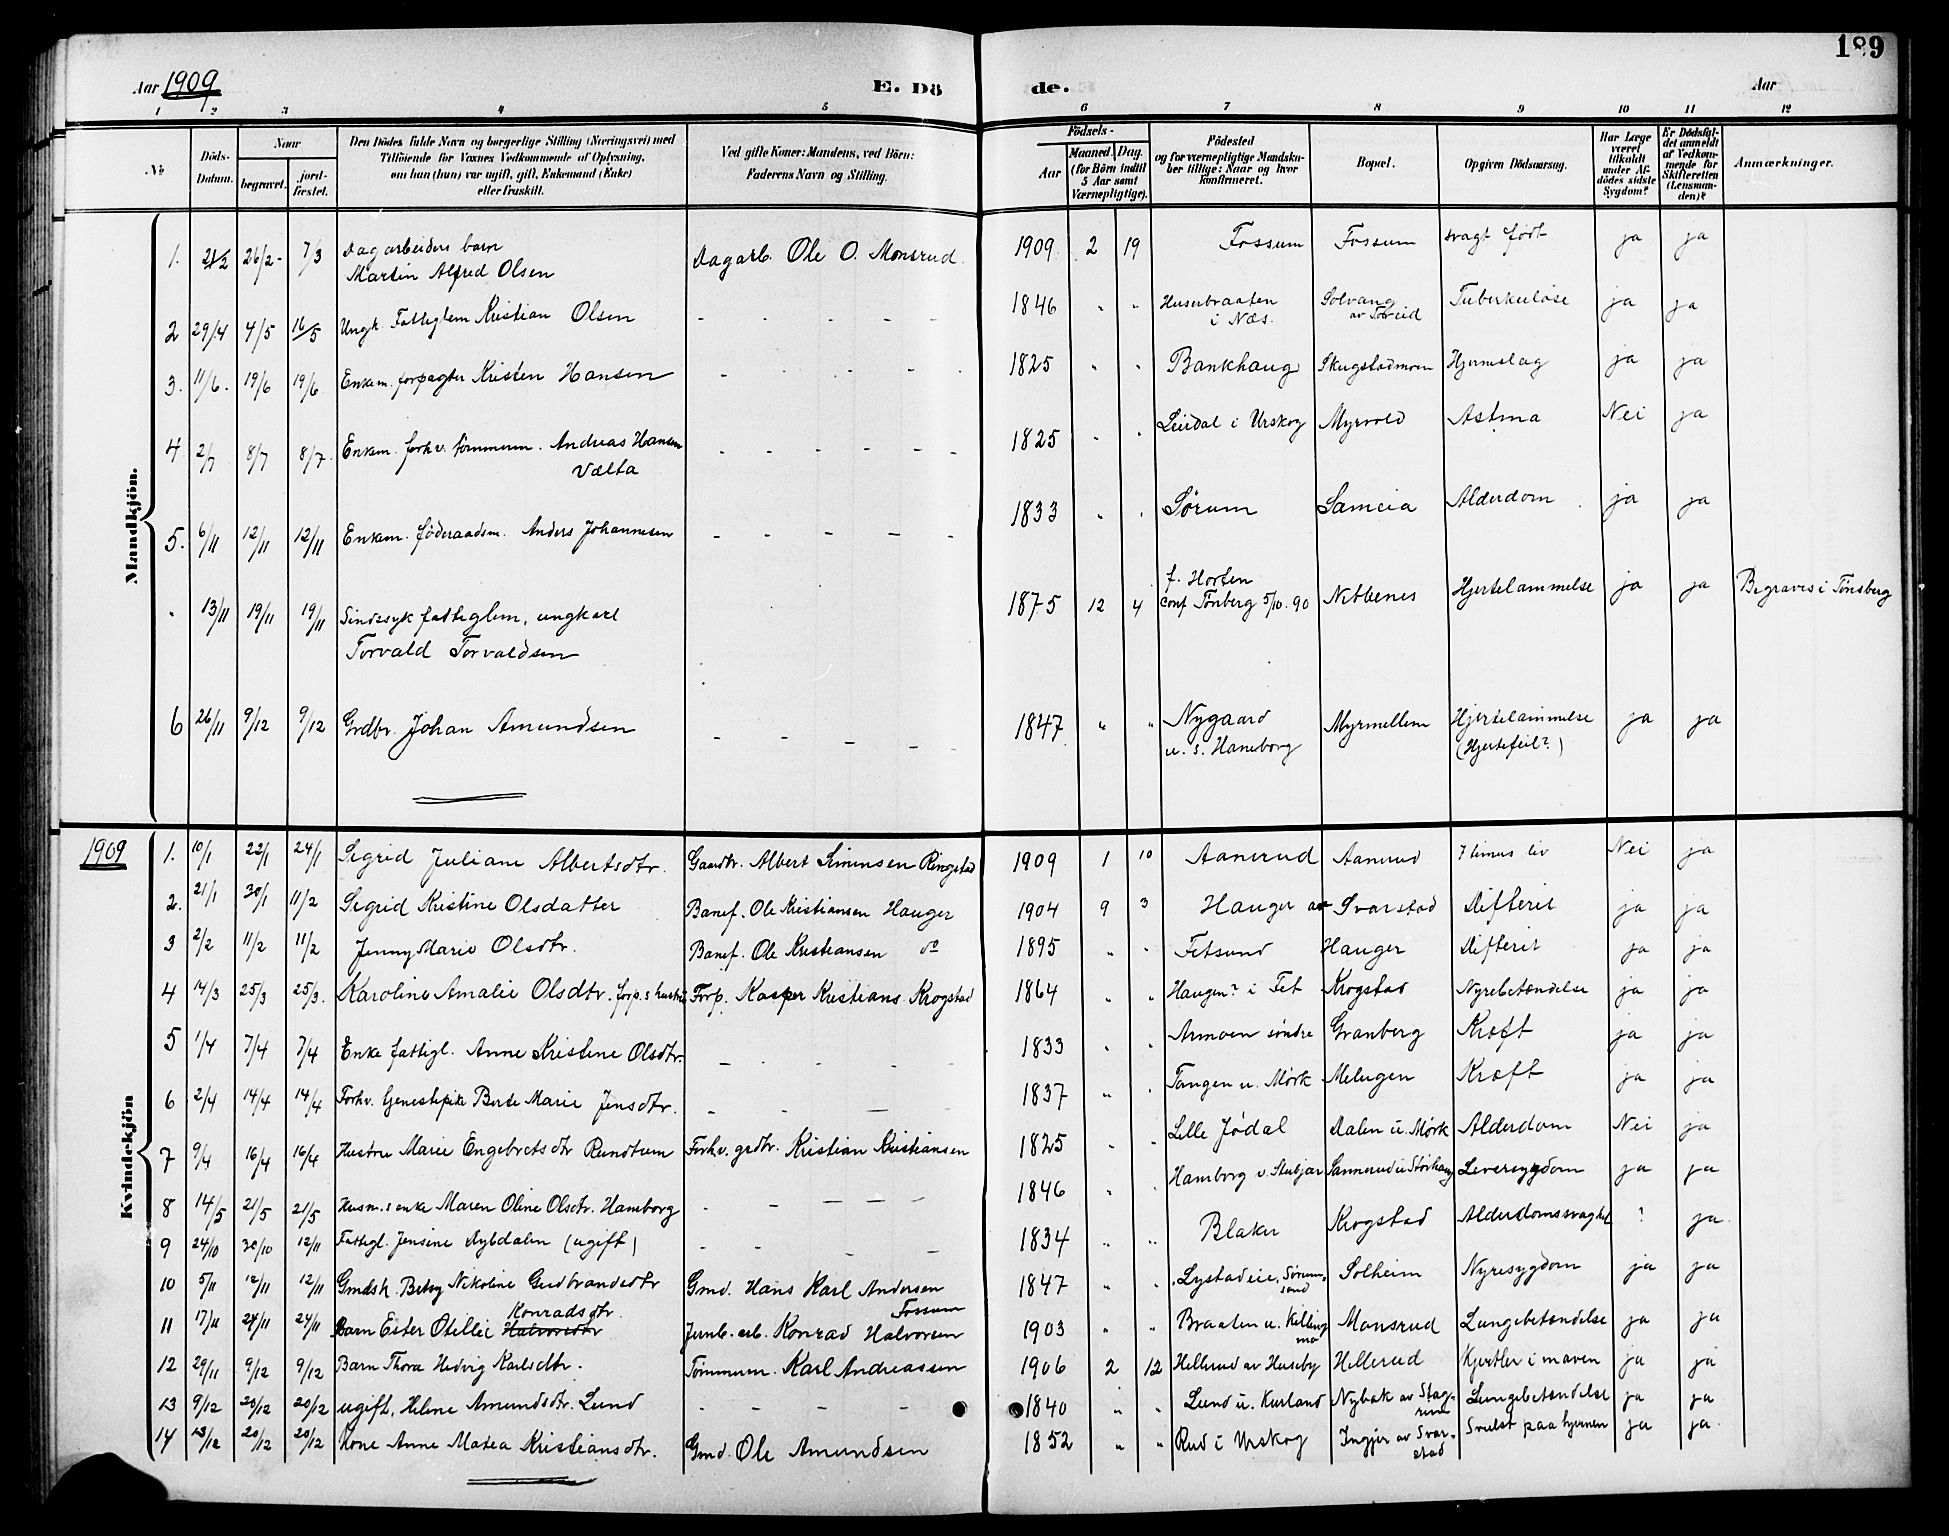 189
Aar 1909
E. Dö
de.
Aar
1 2 3 4 5 6 7 8 9 10 11 12
No
Döds-Datum.
Naar
begravet.
jord-fæstet.
Den Dödes fulde Navn og borgerlige Stilling (Næringsvei) med
Tilföiende for Voxnes Vedkommende af Oplysning,
om han (hun) var ugift, gift, Enkemand (Enke)
eller fraskilt.
Ved gifte Koner: Mandens, ved Börn:
Faderens Navn og Stilling.
Födsels-
Aar
Maaned. Dag.
(for Börn indtil
5 Aar samt
Værnepligtige).
Födested
og for værnepligtige Mandsku-
ber tillige: Naar og hvor
konfirmeret.
Bopæl.
Opgiven Dödsaarsag.
Har Læge
været
tilkaldt
under Af-
dödes sidste
Sygdom?
Er Dödsfal-
det anmeldt
af Vedkom-
mende for
Skifteretten
(Lensman-
den)?
Anmærkninger.
Mandkjön.
1. 21/2 26/2 - 7/3 Dagarbeiders barn
Martin Alfred Olsen Dagarb. Ole O. Monsrud 1909 2 19 Fossum Fossum svagt født ja ja
2 29/4 4/5 16/5 Ungk. Fattiglem Kristian Olsen - - - - - 1846 " " Huserbraaten
i Næs. Solvang
av Toreid Tuberkuløse ja ja
3. 11/6. 19/6 19/6 Enkem. forpagter Kristen Hansen - - - - 1825 " " Bankhaug Skugstadmoen Hjerneslag ja ja
4 2/7 8/7 8/7 Enkem. forhv. tømmerm. Andreas Hansen
Vælta - - - - - 1825 " " Liudal i Urskog Myrvold Astma Nei ja
5. 6/11 12/11 12/11 Enkem. føderaadsm. Anders Johannesen - - - - - 1833 " " Sørum Sameia Alderdom ja ja
" 13/11 19/11 19/11 Sindssyk fattiglem, ungkarl
Torvald Torvaldsen 1875 12 4 f. Horten
conf Tönberg 5/10. 90 Nebbenes Hjertelammelse ja ja Begraves i Tönsberg
6 26/11 9/12 9/12 Grdbr. Johan Amundsen - - - - - 1847 " " Nygaard
u. s. Haneborg Myrmellem Hjertelammelse
(Hjertefeil?) ja ja
1909
Kvindekjön
1. 10/1 22/1 24/1 Sigrid Juliane Albertsdtr. Gaardbr. Albert Simensen Ringstad 1909 1 10 Aanerud Aanerud 7 timers liv Nei ja
2. 21/1 30/1 11/2 Sigrid Kristine Olsdatter Banef. Ole Kristiansen Hauger 1904 9 3 Hauger av Svarstad Difterit ja ja
3 2/2 11/2 11/2 Jenny Marie Olsdtr. Banef. Ole Kristiansen do 1895 " " Fetsund Hauger Difterit ja ja
4 14/3 25/3 25/3. Karoline Amalie Olsdtr. forp.s hustru Forp. Kasper Kristians. Krogstad 1864 " " Haugen? i Fet Krogstad Nyrebetændelse ja ja
5 1/4 7/4 7/4 Enke fattigl. Anne Kristine Olsdtr. - - - - 1833 " " Armoen søndre Granberg Kræft ja ja
6 2/4 14/4 14/4 Forhv. tjenestepike Berte Marie Jensdtr. - - - - 1837 " " Tangen u. Mørk Melugen Kræft ja ja
7 9/4 16/4 16/4 Hustru Marie Engebretsdtr Rundtum Forhv. grdbr. Kristian Kristiansen 1825 " " Lille Jødal Dalen u. Mørk Alderdom Nei ja
8 14/5 21/5 21/5 Husm.s enke Maren Oline Olsdtr. Hamborg - - - - - 1846 " " Hamborg v. Stubjar Sannerud u Störhaug Leversygdom ja ja
9 24/10 30/10 12/11 Fattigl. Jensine Nybdalen (ugift) - - - - - 1834 " " Blaker Krogstad Alderdomssvaghet ? ja
10 5/11 12/11 12/11 Gmdsk. Betsy Nikoline Gudbrandsdtr Gmd. Hans Karl Andersen 1847 " " Lystadeie, Sørum-
sand Solheim Nyresygdom ja ja
11 17/11 24/11 24/11 Barn Ester Otillie Halvorsdtr Konradsdtr. Jernb. arb. Konrad Halvorsen Fossum 1903 " " Braaten u. Killing
mo Monsrud Lungebetændelse ja ja
12 29/11 9/12 9/12 Barn Thora Hedvig Karlsdtr. Tømmerm. Karl Andreassen 1906 2 12 Hellerud av Huseby Hellerud Kjertler i maven ja ja
13 9/12 20/12 20/12 ugift, Helene Amundsdtr. Lund - - - - - 1840 " " Lund u. Kurland Nybak av Stag-
rim Lungebetændelse ja ja
14 13/12 20/12 20/12 Kone Anne Matea Kristiansdtr. Gmd. Ole Amundsen 1852 " " Rud i Urskog Ingjer av Svar-
stad Svulst paa hjernen ja ja